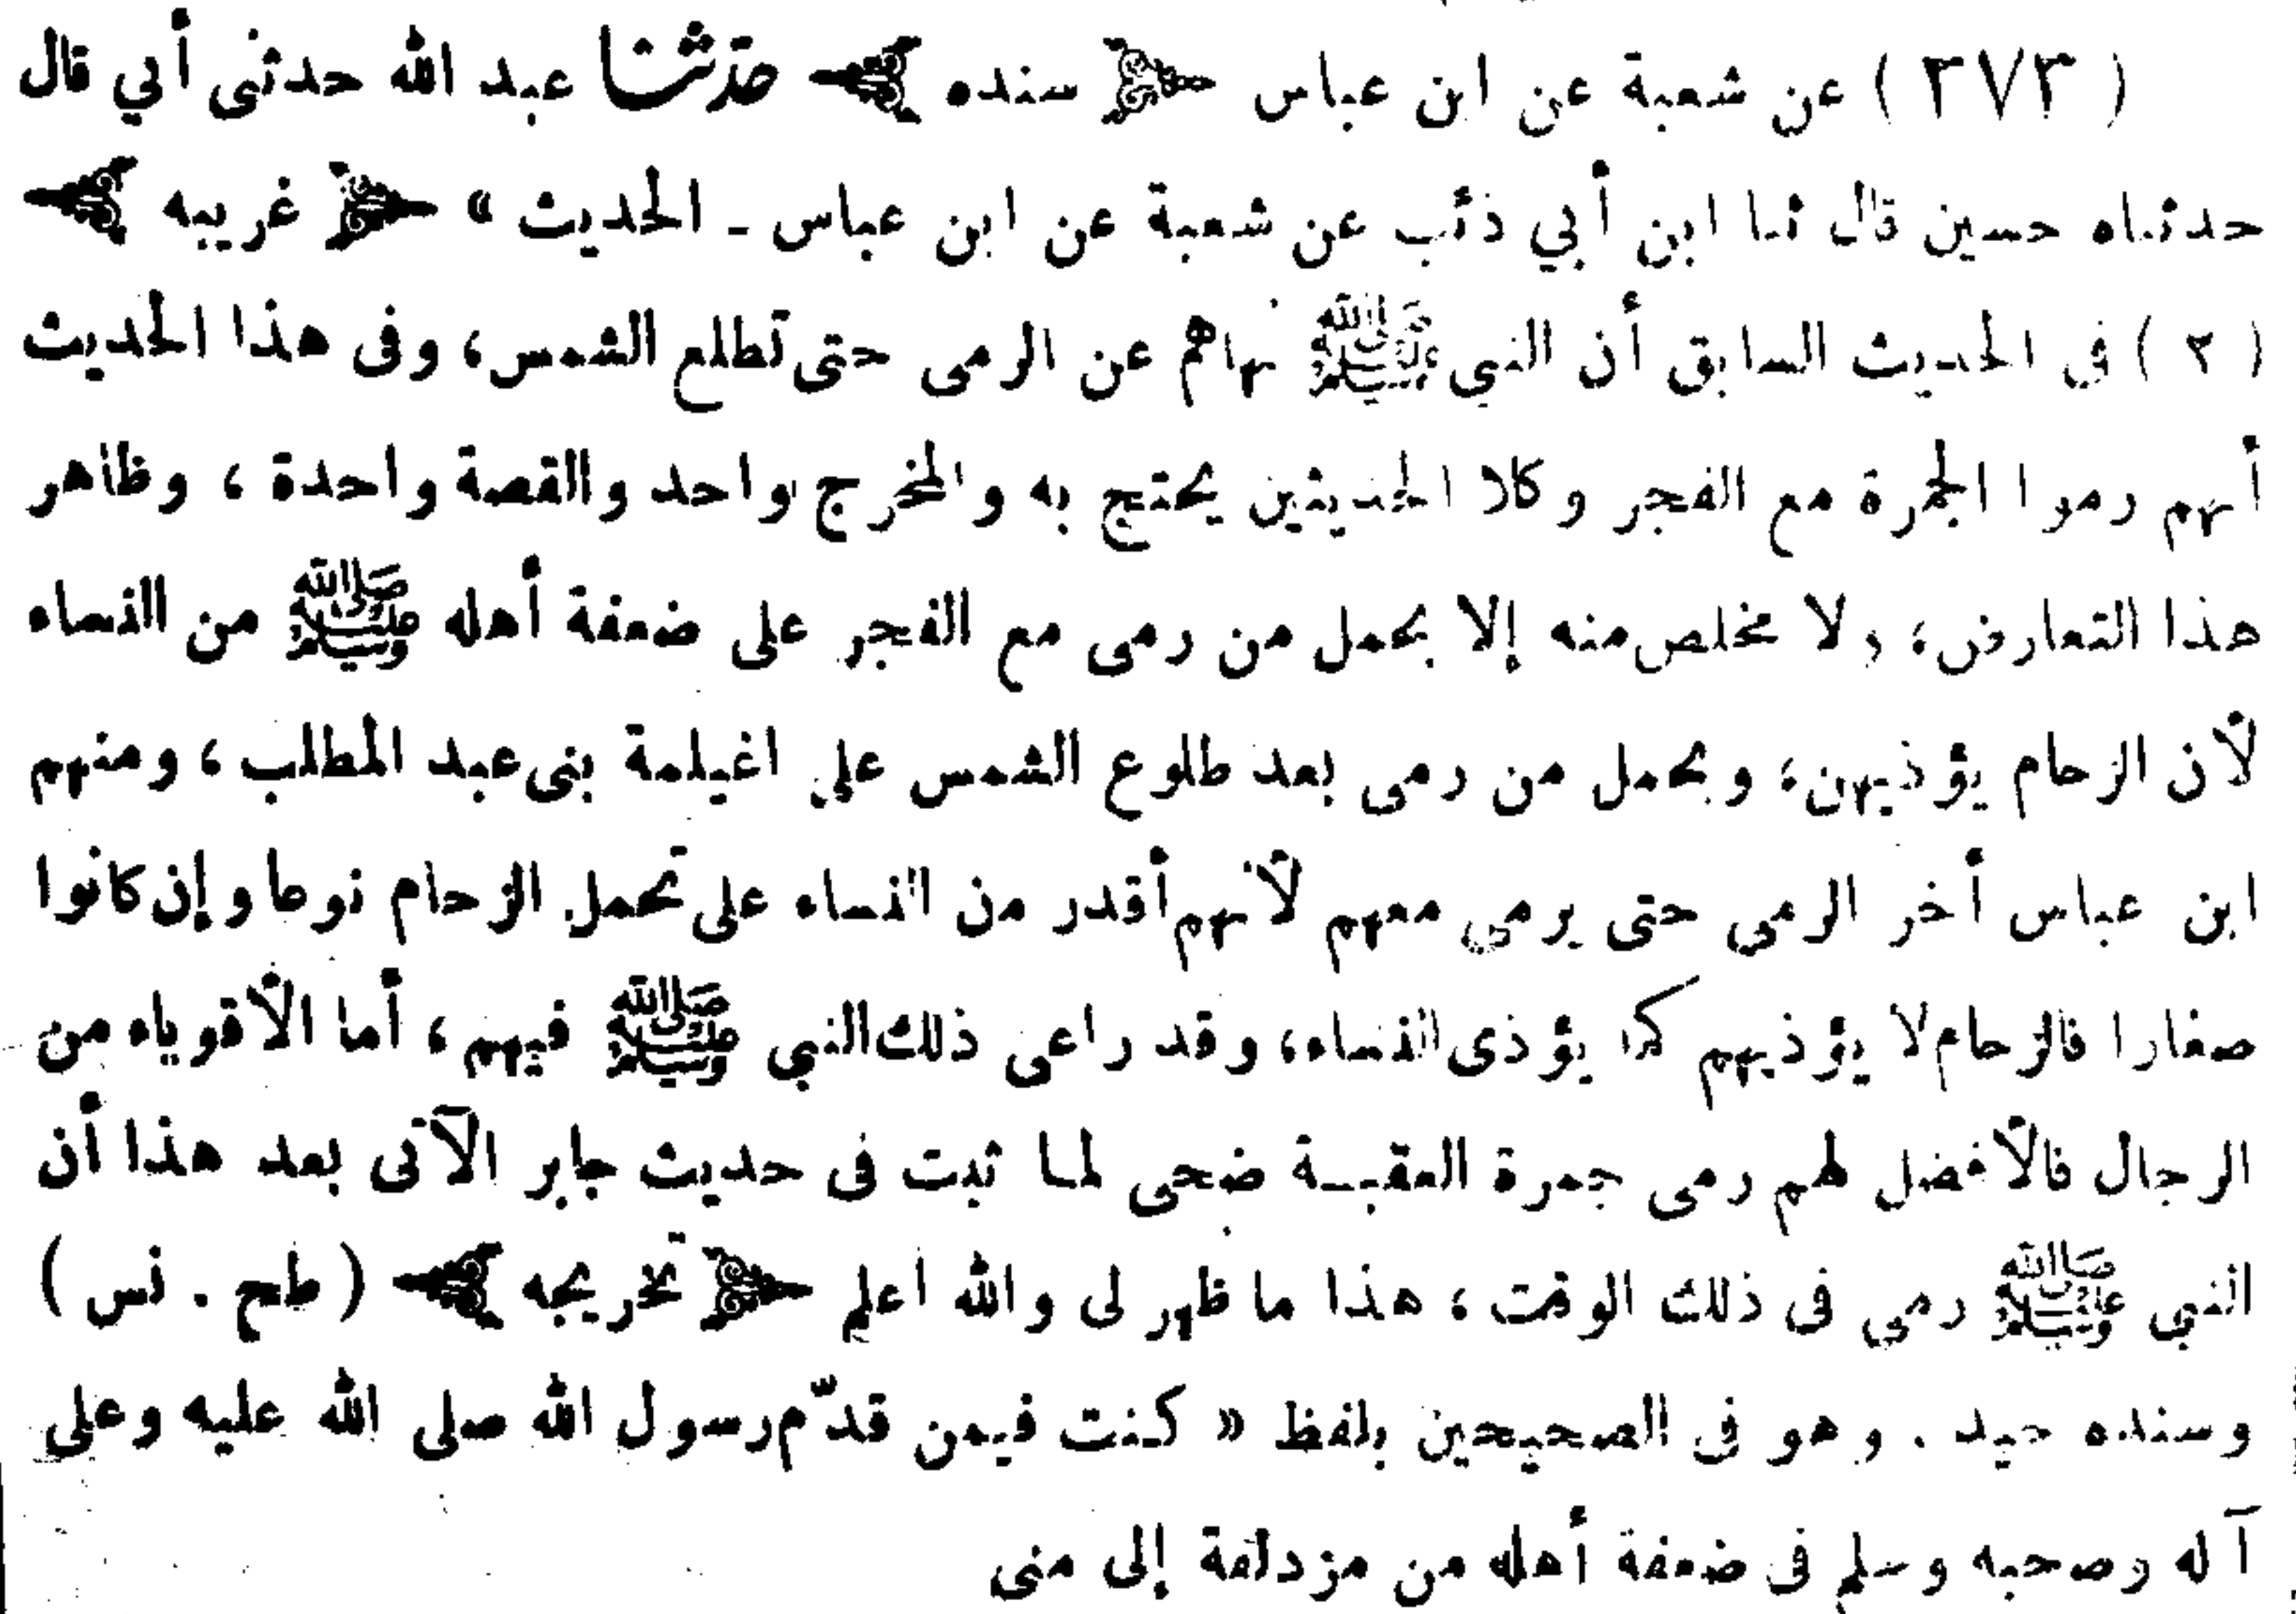 ( ٢٧٣ ) عن شعبة عن ابن عباس ﴿ سنده ﴾ حدّثنا عبد الله حدثنى أبي قال
حدثناه حسين قال ثنا ابن أبي ذئب عن شعبة عن ابن عباس ـ الحديث » ﴿ غريبه ﴾
( ٢ ) فى الحديث السابق أن النبي ﷺ نهاهم عن الرمى حتى تطلع الشمس، وفى هذا الحديث
أنهم رموا الجمرة مع الفجر وكلا الحديثين يحتج به والمخرج واحد والقصة واحدة ، وظاهر
هذا التعارض، ولا مخلص منه إلا بحمل من رمى مع الفجر على ضعفة أهله ﷺ من النساء
لأن الزحام يؤذيهن، وبحمل من رمى بعد طلوع الشمس على اغيلمة بنى عبد المطلب ، ومنهم
ابن عباس أخر الرمى حتى يرمى معهم لأنهم أقدر من النساء على تحمل الزحام نوعا وإن كانوا
صغارا فالزحام لا يؤذيهم كما يؤذى النساء، وقد راعى ذلك النبي ﷺ فيهم ، أما الأقوياء من
الرجال فالأفضل لهم رمى جمرة العقبـة ضحى لما ثبت فى حديث جابر الآتى بعد هذا أن
النبي ﷺ رمى فى ذلك الوقت ، هذا ما ظهر لى والله اعلم ﴿ تخريجه ﴾ ( طح . نس )
وسنده جيد . وهو فى الصحيحين بلفظ « كنت فيمن قدّم رسول الله صلى الله عليه وعلى
آله وصحبه وسلم فى ضعفة أهله من مزدلفة إلى منى